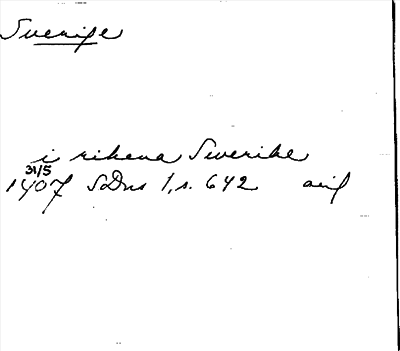 Sverige
i rikena Swerike
31/5
1407 SDns 1, s. 642 avil